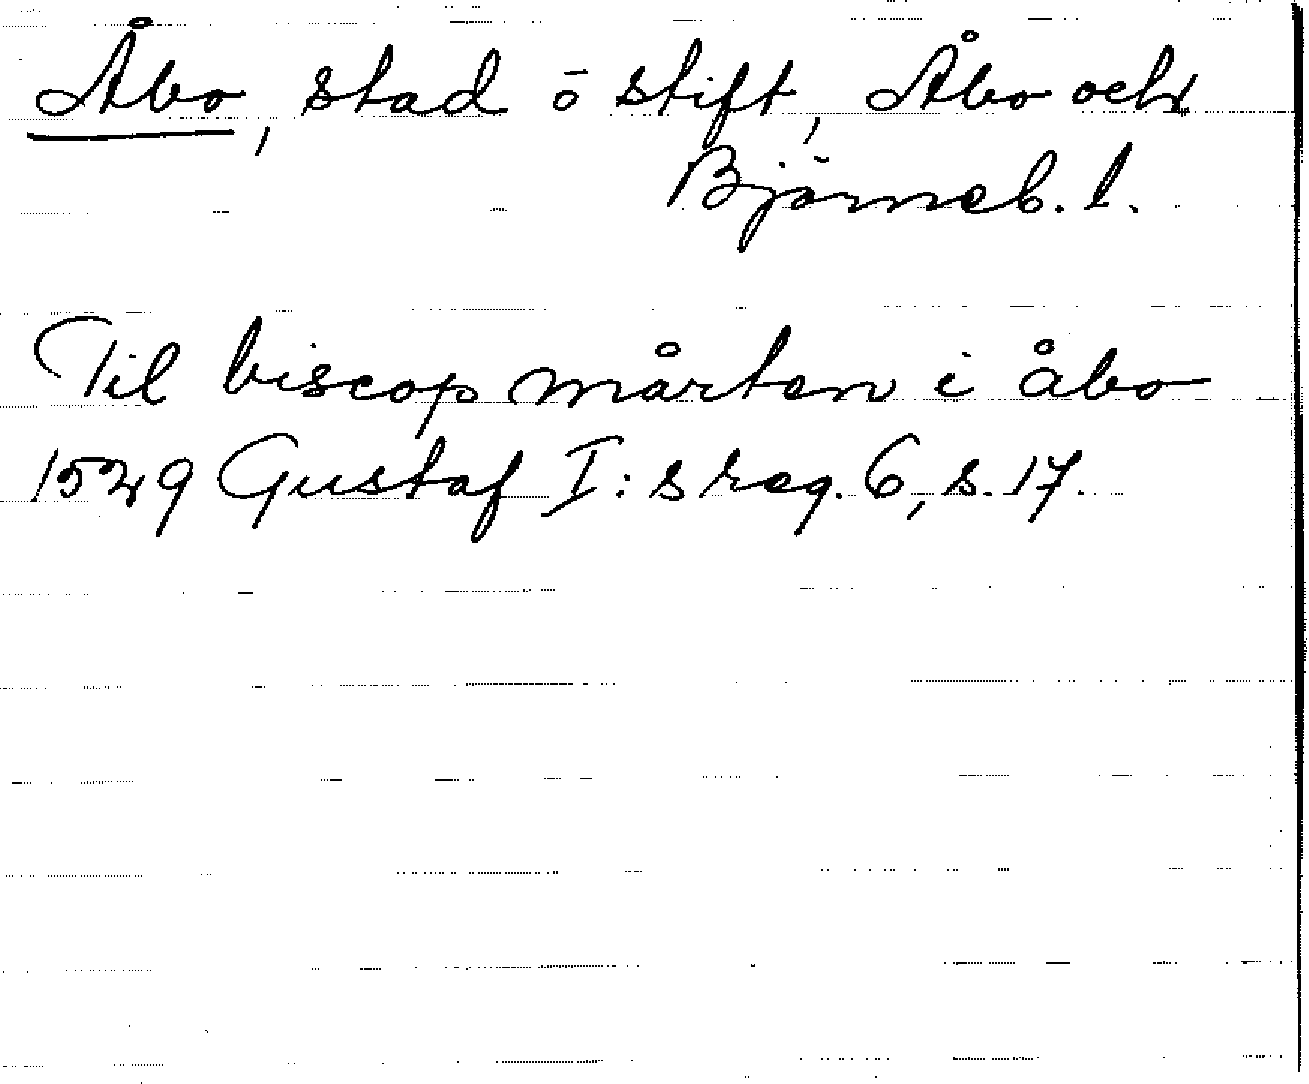 Åbo, stad o stift, Åbo och
Björneb. l.
Til biscop mårten i åbo
1529 Gustaf I:s reg. 6, s. 17.